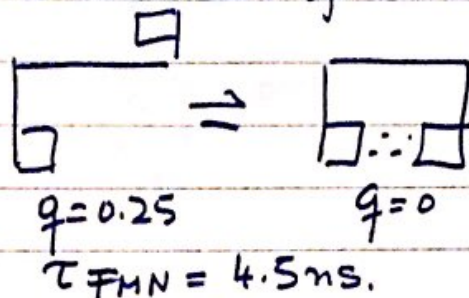 q=0.25 ⇌ q=0
τ FMN = 4.5ns.